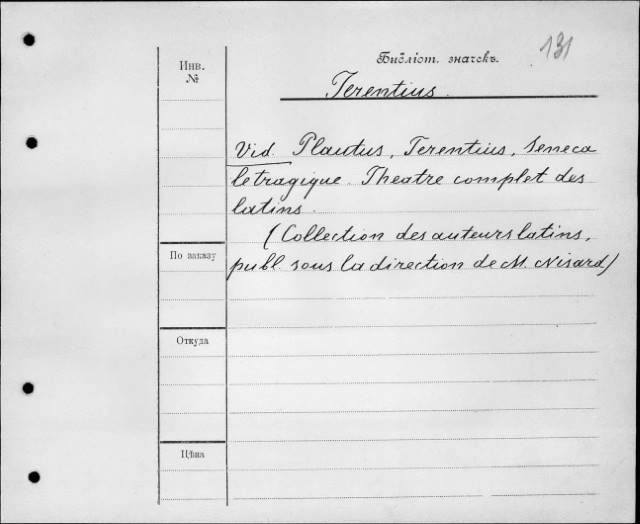 Инв.
№
Библіот. значекъ.
131
Terentius.
Vid. Plautus, Terentius, Seneca
le tragique. Theatre complet des
latins.
(Collection des auteurs latins,
publ. sous la direction de M. Nisard)
По заказу
Откуда
Цѣна